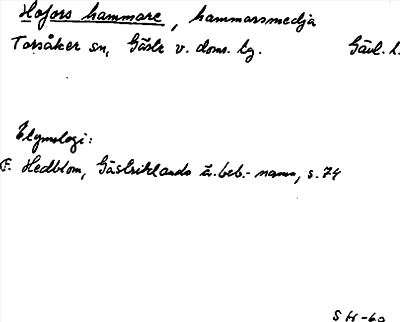 Hofors hammare, hammarsmedja
Torsåker sn, Gästr v. doms. lg. Gävl. l.
Etymologi:
F. Hedblom, Gästriklands ä. beb.- namn, s. 74
S H -60